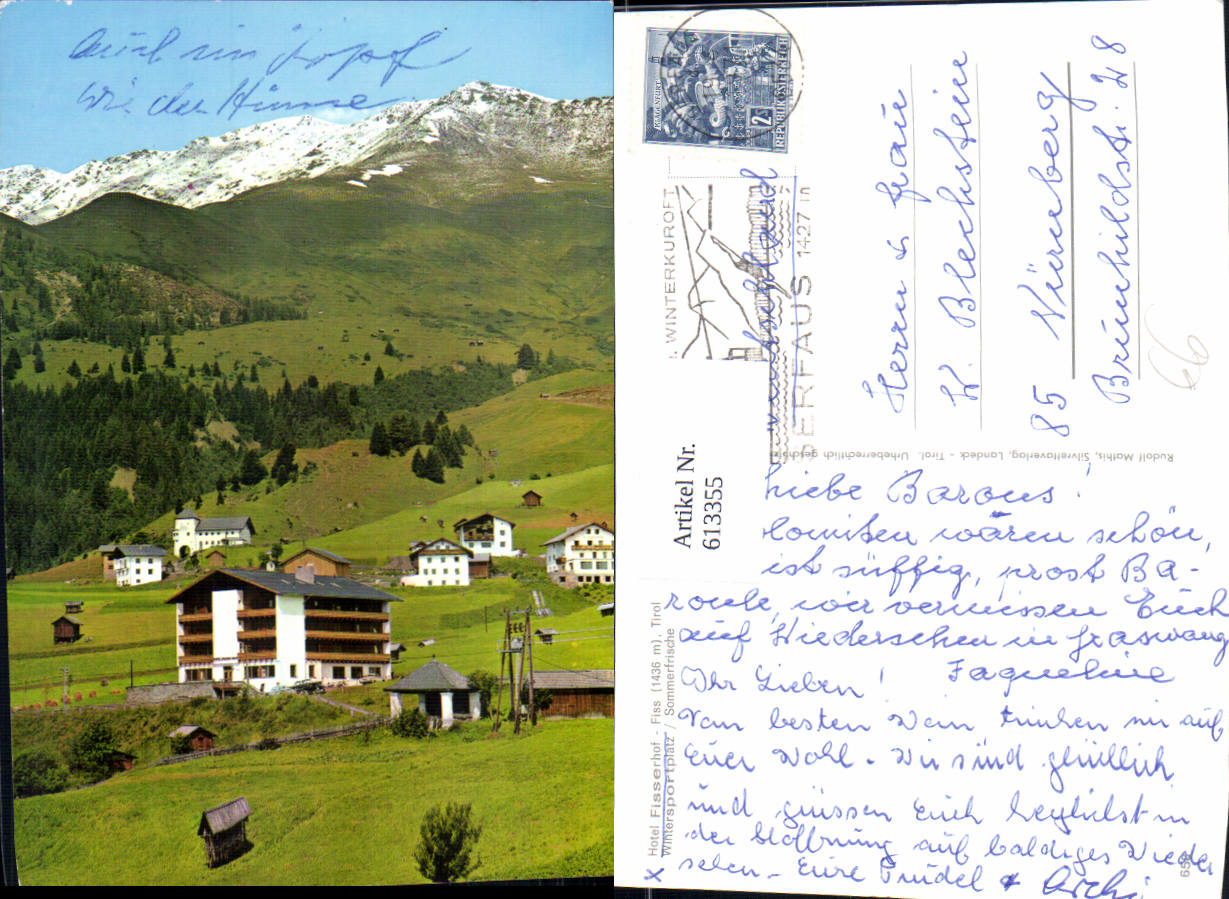 Auch im
Wie der
KLAGENFURT
2S
REPUBLIK ÖSTERREICH
WINTERKURORT
SERFAUS
Deutschland
Herrn u Frau
W. Blechstein
85 Nürnberg
Brünhildstr. 28
66
Rudolf Mathis, Silvrettaverlag, Landeck - Tirol. Urheberrechtlich
Artikel Nr.
613355
Liebe Barons!
wären schön,
ist süffig, prost Ba-
ronle, wir vermissen Euch
auf Wiedersehen in Graswang
Ihr Lieben! Jaqueline
Vom besten Wein trinken wir auf
Euer Wohl - Wir sind glücklich
und grüssen Euch herzlichst in
der Hoffnung auf baldiges Wieder
sehen - Eure
Hotel Fisserhof - Fiss (1436 m), Tirol
Wintersportplatz / Sommerfrische
x